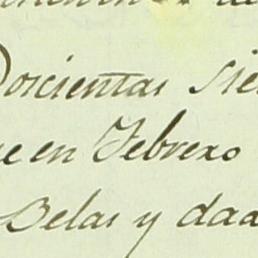 Doscientas sie
ue en Febrero
Belas y dada